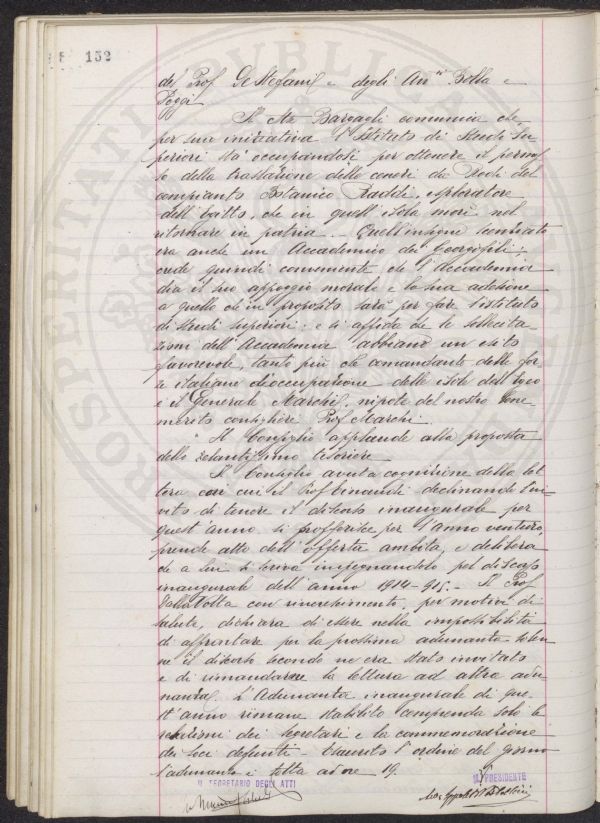 152
del Prof. De Stefani e degli Avv.ti Bolla e
Poggi.
Il M.se Bargagli comunica che
per sua iniziativa l'Istituto di Studi Su
periori sta occupandosi per ottenere il permes
so della traslazione delle ceneri da Rodi del
compianto Botanico Raddi, esploratore
dell'Egitto, che in quell'isola morì nel
ritornare in patria. - Quell'insigne scienziato
era anche un Accademico dei Georgofili;
crede quindi conveniente che l'Accademia
dia il suo appoggio morale e la sua adesione
a quello che in proposito sarà per fare l'istituto
di studi superiori: e si affida che le sollecita
zioni dell'Accademia abbiano un esito
favorevole, tanto più che comandante delle for
ze italiane d'occupazione delle isole dell'Egeo
è il Generale Marchi, nipote del nostro bene
merito consigliere Prof. Marchi.
Il Consiglio applaude alla proposta
dello zelantissimo tesoriere
Il Consiglio avuta cognizione della let
tera con cui il Prof. Einaudi declinando l'in
vito di tenere il discorso inaugurale per
quest'anno si profferisce per l'anno venturo,
prende atto dell'offerta ambita, e delibera
che a Lui si scriva impegnandolo pel discorso
inaugurale dell'anno 1914-915. - Il Prof.
Dalla Volta con rincrescimento, per motivi di
salute, dichiara di essere nella impossibilità
di affrontare per la prossima adunanza solen
ne il discorso secondo ne era stato invitato
e di rimandarne la lettura ad altra adu
nanza. L'Adunanza inaugurale di que
st'anno rimane stabilito comprenda solo le
relazioni dei Segretari e la commemorazione
dei Soci defunti - Esaurito l'ordine del giorno
l'adunanza è tolta ad ore 19.
IL SEGRETARIO DEGLI ATTI
IL PRESIDENTE
PROSPERITATI PUBLICAE